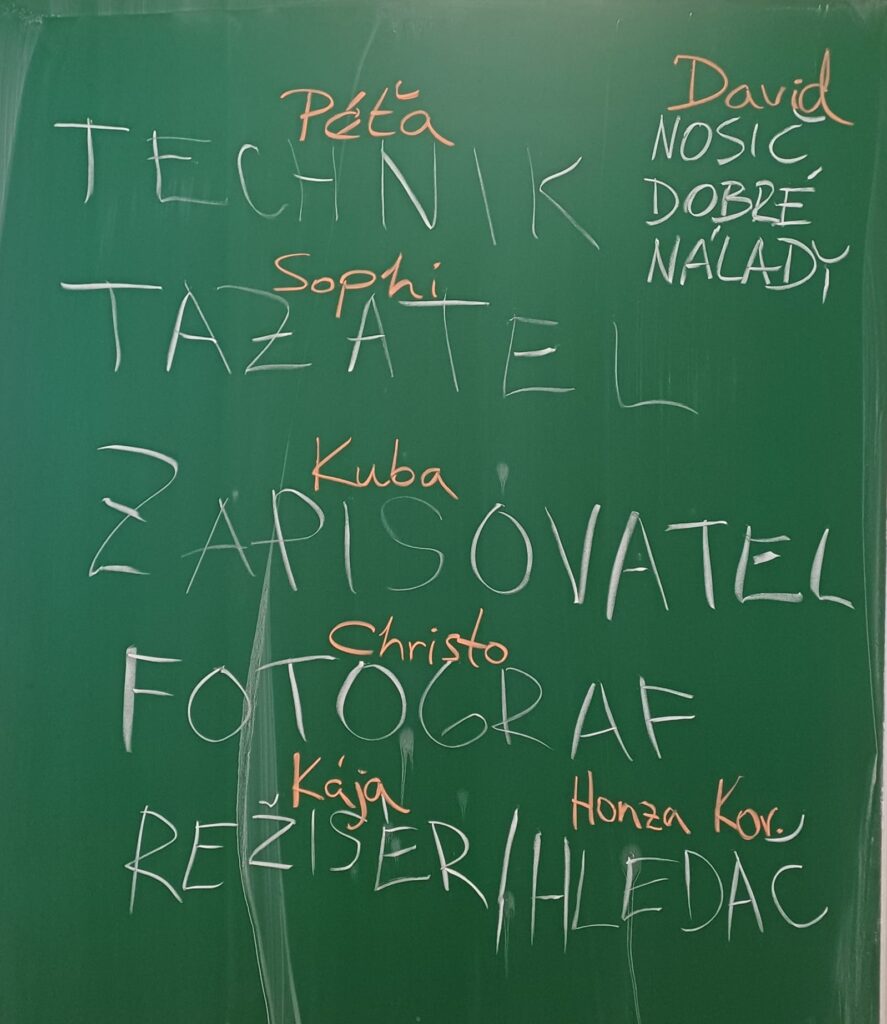 Péťa
TECHNIK
David
NOSIČ
DOBRÉ
NÁLADY
Sophi
TAZATEL
Kuba
ZAPISOVATEL
Christo
FOTOGRAF
Kája
Honza Kor.
REŽISÉR/HLEDAČ